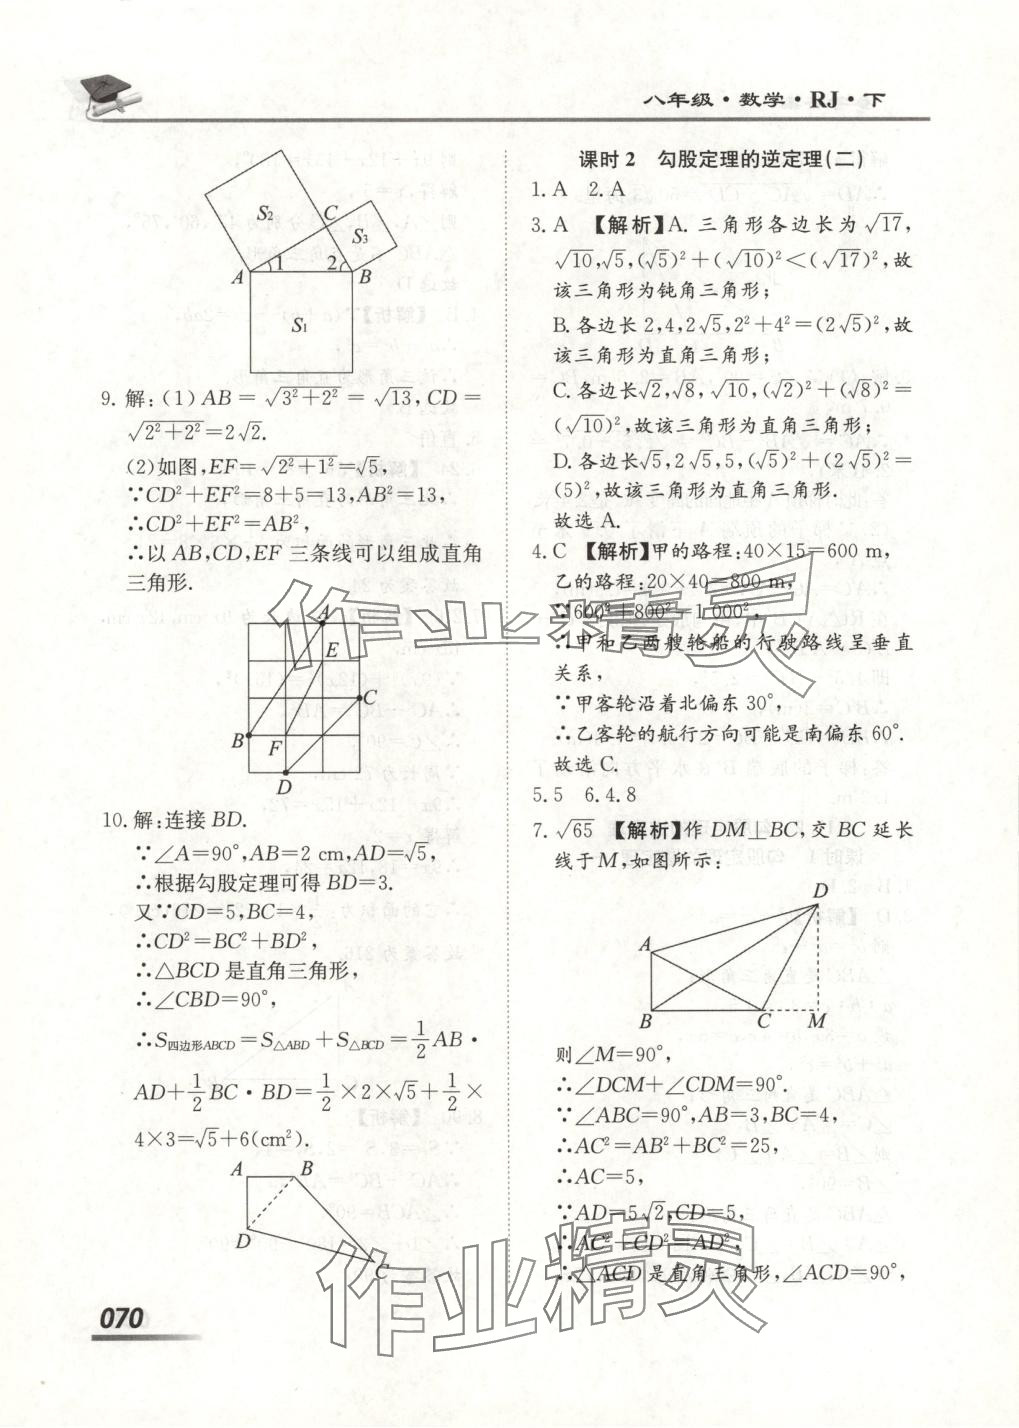 八年级·数学·RJ·下
S₂
C
S₃
A
1
2
B
S₁
9. 解:(1) AB = √(3²+2²) = √13, CD =
√(2²+2²)=2√2.
(2)如图,EF=√(2²+1²)=√5,
∵CD²+EF²=8+5=13,AB²=13,
∴CD²+EF²=AB²,
∴以 AB,CD,EF 三条线可以组成直角
三角形.
A
E
C
B
F
D
10. 解:连接 BD.
∵∠A=90°,AB=2 cm,AD=√5,
∴根据勾股定理可得 BD=3.
又∵CD=5,BC=4,
∴CD²=BC²+BD²,
∴△BCD 是直角三角形,
∴∠CBD=90°,
∴S四边形ABCD=S△ABD+S△BCD=1/2 AB·
AD+1/2 BC·BD=1/2×2×√5+1/2×
4×3=√5+6(cm²).
A
B
D
C
070
课时2 勾股定理的逆定理(二)
1. A 2. A
3. A 【解析】A. 三角形各边长为√17,
√10,√5,(√5)²+(√10)²<(√17)²,故
该三角形为钝角三角形;
B. 各边长 2,4,2√5,2²+4²=(2√5)²,故
该三角形为直角三角形;
C. 各边长√2,√8,√10,(√2)²+(√8)²=
(√10)²,故该三角形为直角三角形;
D. 各边长√5,2√5,5,(√5)²+(2√5)²=
(5)²,故该三角形为直角三角形.
故选 A.
4. C 【解析】甲的路程:40×15=600 m,
乙的路程:20×40=800 m,
∵600²+800²=1 000²,
∴甲和乙两艘轮船的行驶路线呈垂直
关系,
∵甲客轮沿着北偏东 30°,
∴乙客轮的航行方向可能是南偏东 60°.
故选 C.
5. 5 6. 4.8
7. √65 【解析】作 DM⊥BC,交 BC 延长
线于 M,如图所示:
D
A
B
C
M
则∠M=90°,
∴∠DCM+∠CDM=90°.
∵∠ABC=90°,AB=3,BC=4,
∴AC²=AB²+BC²=25,
∴AC=5,
∵AD=5√2,CD=5,
∴AC²+CD²=AD²,
∴△ACD 是直角三角形,∠ACD=90°,
作业精灵
作业精灵